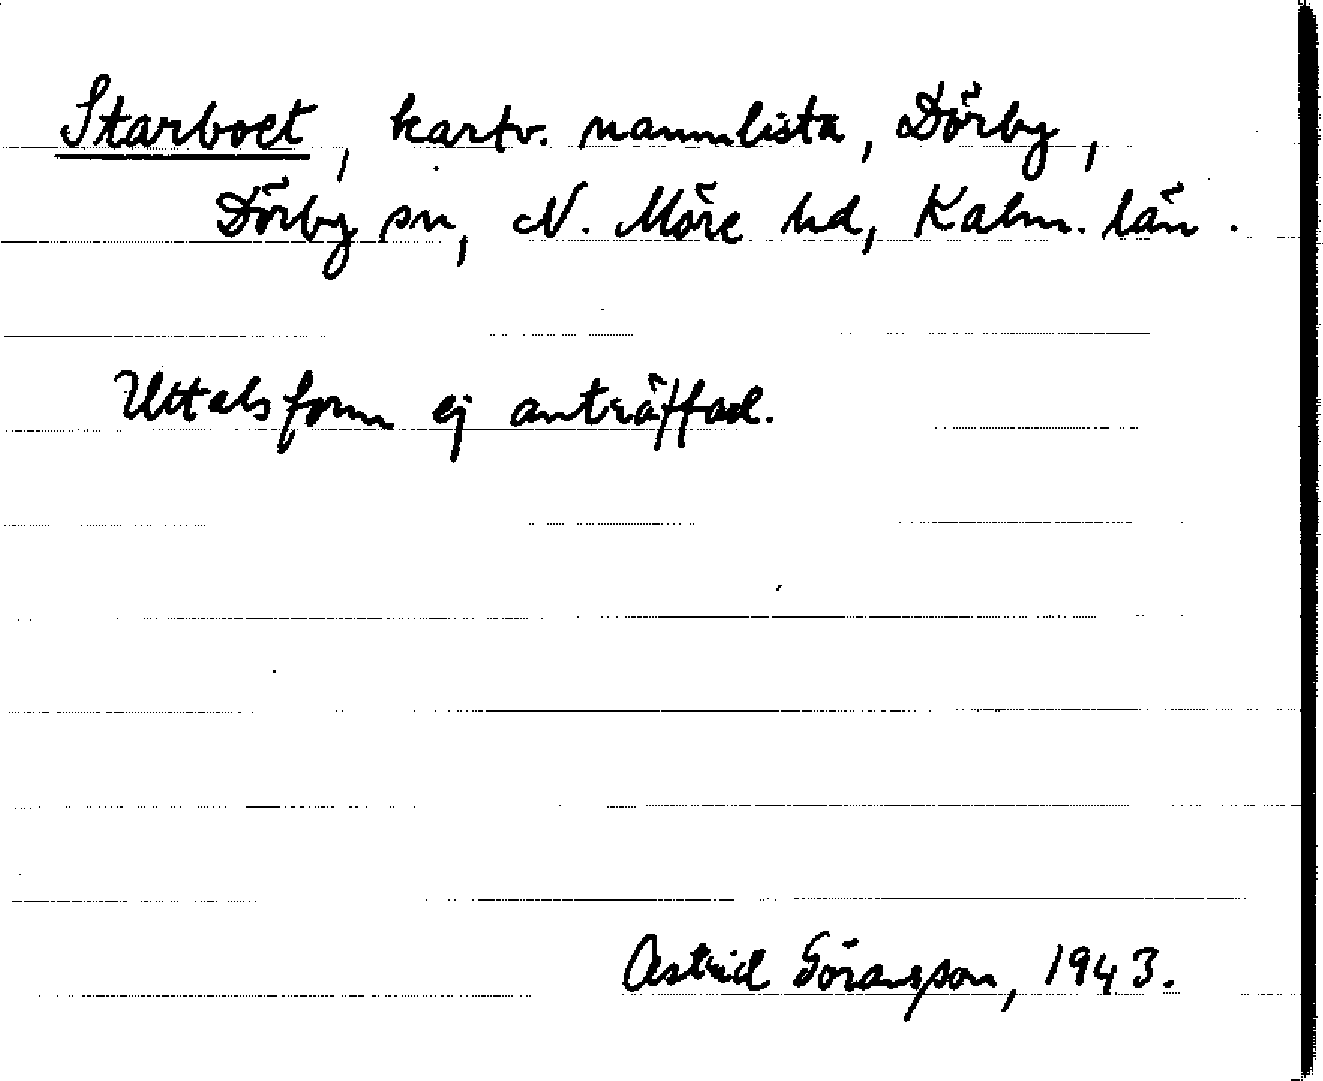 Starboet, kartv. namnlista, Dörby,
Dörby sn, N. Möre hd, Kalm. län.
Uttalsform ej anträffad.
Astrid Göransson, 1943.